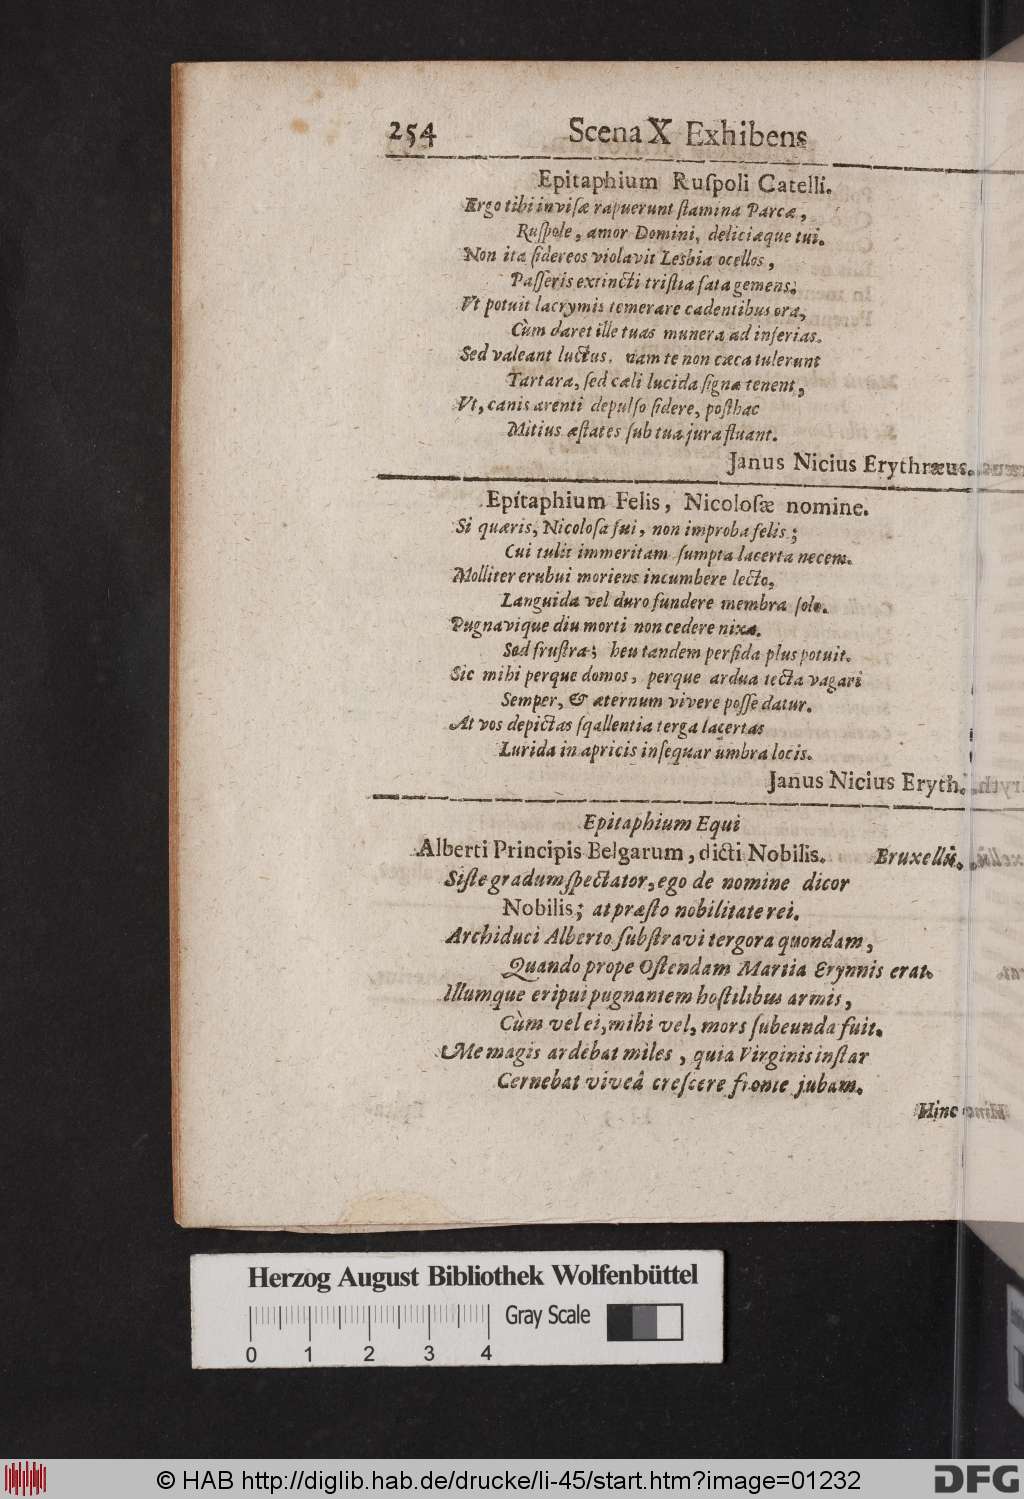 254 Scena X Exhibens
Epitaphium Ruſpoli Catelli.
Ergo tibi inviſæ rapuerunt ſtamina Parcæ,
Ruſpole, amor Domini, deliciæque tui.
Non ita ſidereos violavit Lesbia ocellos,
Paſſeris extincti triſtia fata gemens;
Vt potuit lacrymis temerare cadentibus ora,
Cùm daret ille tuas munera ad inferias.
Sed valeant luctus, nam te non cæca tulerunt
Tartara, ſed cæli lucida ſigna tenent,
Vt, canis arenti depulſo ſidere, poſthac
Mitius æſtates ſub tua jura fluant.
Janus Nicius Erythræus.
Epitaphium Felis, Nicoloſæ nomine.
Si quæris, Nicoloſa fui, non improba felis;
Cui tulit immeritam ſumpta lacerta necem.
Molliter erubui moriens incumbere lecto,
Languida vel duro fundere membra ſolo.
Pugnavique diu morti non cedere nixa.
Sed fruſtra; heu tandem perfida plus potuit.
Sic mihi perque domos, perque ardua tecta vagari
Semper, & æternum vivere poſſe datur.
At vos depictas ſqallentia terga lacertas
Lurida in apricis inſequar umbra locis.
Janus Nicius Eryth.
Epitaphium Equi
Alberti Principis Belgarum, dicti Nobilis. Bruxellis.
Siſte gradum ſpectator, ego de nomine dicor
Nobilis; at præſto nobilitate rei.
Archiduci Alberto ſubſtravi tergora quondam,
Quando prope Oſtendam Martia Erynnis erat.
Illumque eripui pugnantem hoſtilibus armis,
Cùm vel ei, mihi vel, mors ſubeunda fuit.
Me magis ardebat miles, quia Virginis inſtar
Cernebat viveâ creſcere fronte jubam.
Hinc
Herzog August Bibliothek Wolfenbüttel
Gray Scale
0 1 2 3 4
© HAB http://diglib.hab.de/drucke/li-45/start.htm?image=01232
DFG